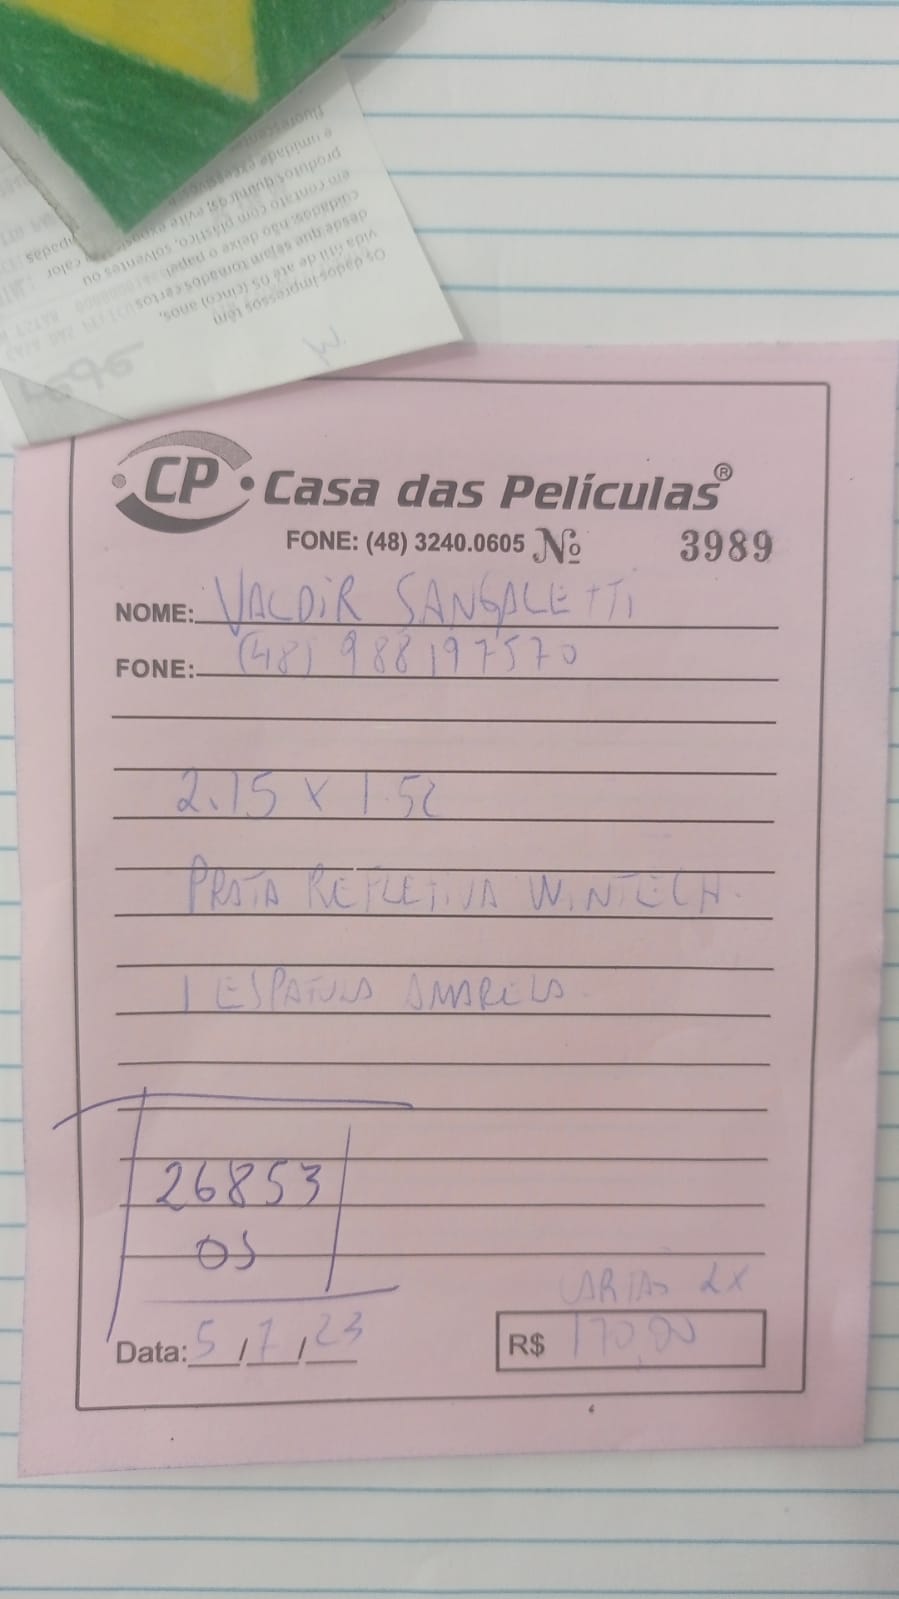 Os dados impressos têm
vida útil de até 05 (cinco) anos,
desde que sejam tomados certos
cuidados; não deixe o papel
em contato com plástico, solventes ou
produtos químicos; evite
e umidade
CP Casa das Películas®
FONE: (48) 3240.0605 Nº 3989
NOME: VALDIR SANGALETTI
FONE: (48) 988197570
2.15 X 1.52
PRATA REFLETIVA WINTECH.
1 ESPATULA AMARELA.
26853
OS
CARTÃO 2X
Data: 5/7/23 R$ 170,00